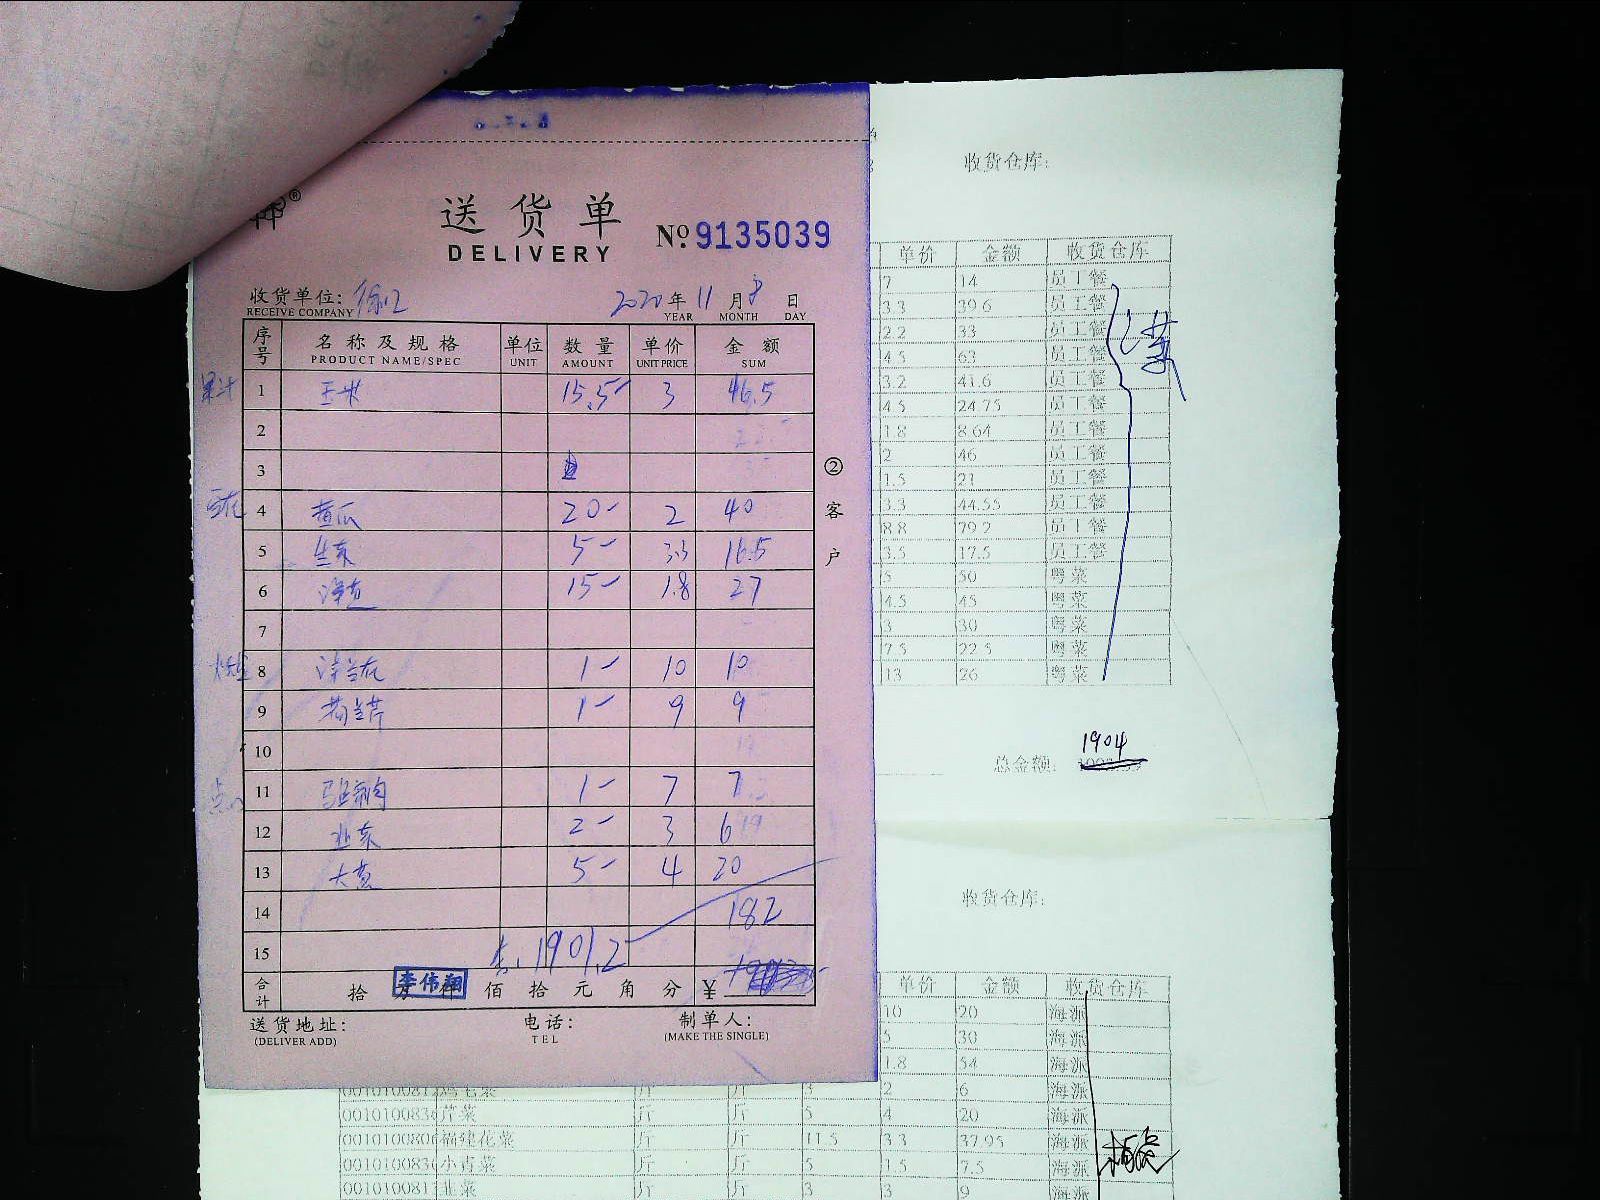 送货单
DELIVERY
№ 9135039
收货单位：
RECEIVE COMPANY
2020年 11 月 8 日
YEAR MONTH DAY
序号 名称及规格 单位 数量 单价 金额
PRODUCT NAME/SPEC UNIT AMOUNT UNIT PRICE SUM
果汁 1 玉米 15.5 3 46.5
2
3
4 黄瓜 20 2 40
5 生菜 5 3.3 16.5
6 洋葱 15 1.8 27
7
8 洋兰花 1 10 10
9 荷兰芹 1 9 9
10
11 1 7 7
12 韭菜 2 3 6
13 大葱 5 4 20
14 182
15 1901.2
合计 拾 万 仟 佰 拾 元 角 分 ¥
李伟翔
送货地址： 电话： 制单人：
(DELIVER ADD) TEL (MAKE THE SINGLE)
② 客户
收货仓库:
单价 金额 收货仓库
7 14 员工餐
3.3 39.6 员工餐
2.2 33 员工餐
4.5 63 员工餐
3.2 41.6 员工餐
4.5 24.75 员工餐
1.8 8.64 员工餐
2 46 员工餐
1.5 21 员工餐
3.3 44.55 员工餐
8.8 79.2 员工餐
3.5 17.5 员工餐
5 50 粤菜
4.5 45 粤菜
3 30 粤菜
7.5 22.5 粤菜
13 26 粤菜
1904
总金额:
收货仓库:
单价 金额 收货仓库
10 20 海派
5 30 海派
1.8 54 海派
鸡毛菜 斤 斤 3 2 6 海派
芹菜 斤 斤 5 4 20 海派
福建花菜 斤 斤 11.5 3.3 37.95 海派
小青菜 斤 斤 5 1.5 7.5 海派
韭菜 斤 斤 3 3 9 海派